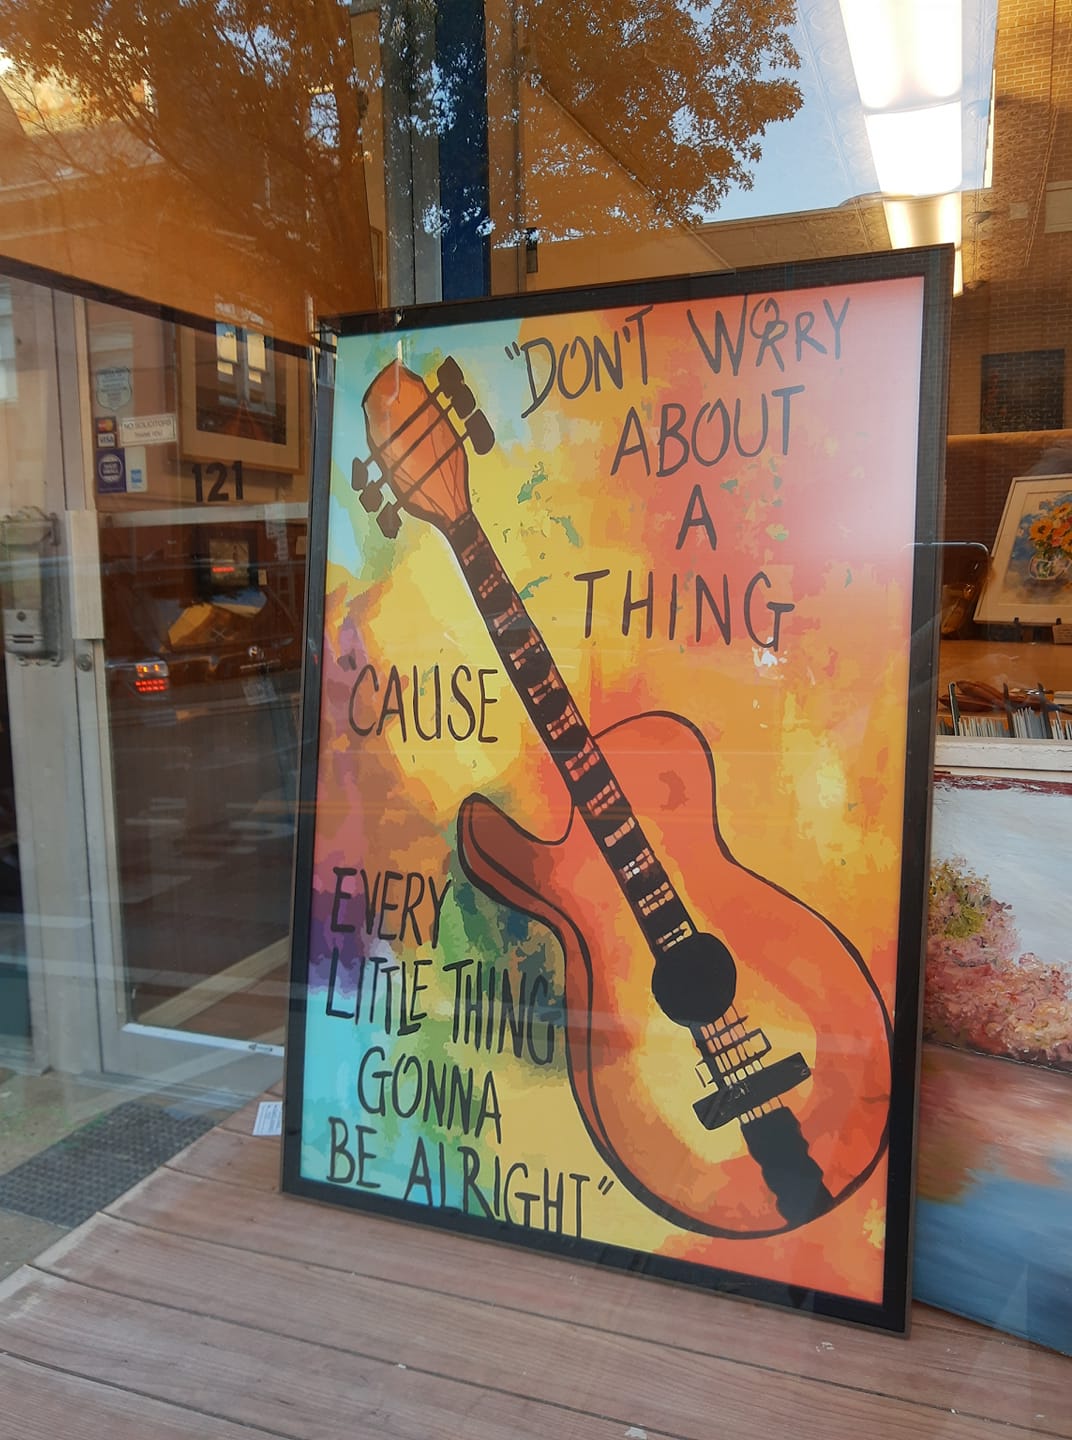 "DON'T WORRY
ABOUT
A
THING
'CAUSE
EVERY
LITTLE THING
GONNA
BE ALRIGHT"
NO SOLICITORS
THANK YOU
VISA
121